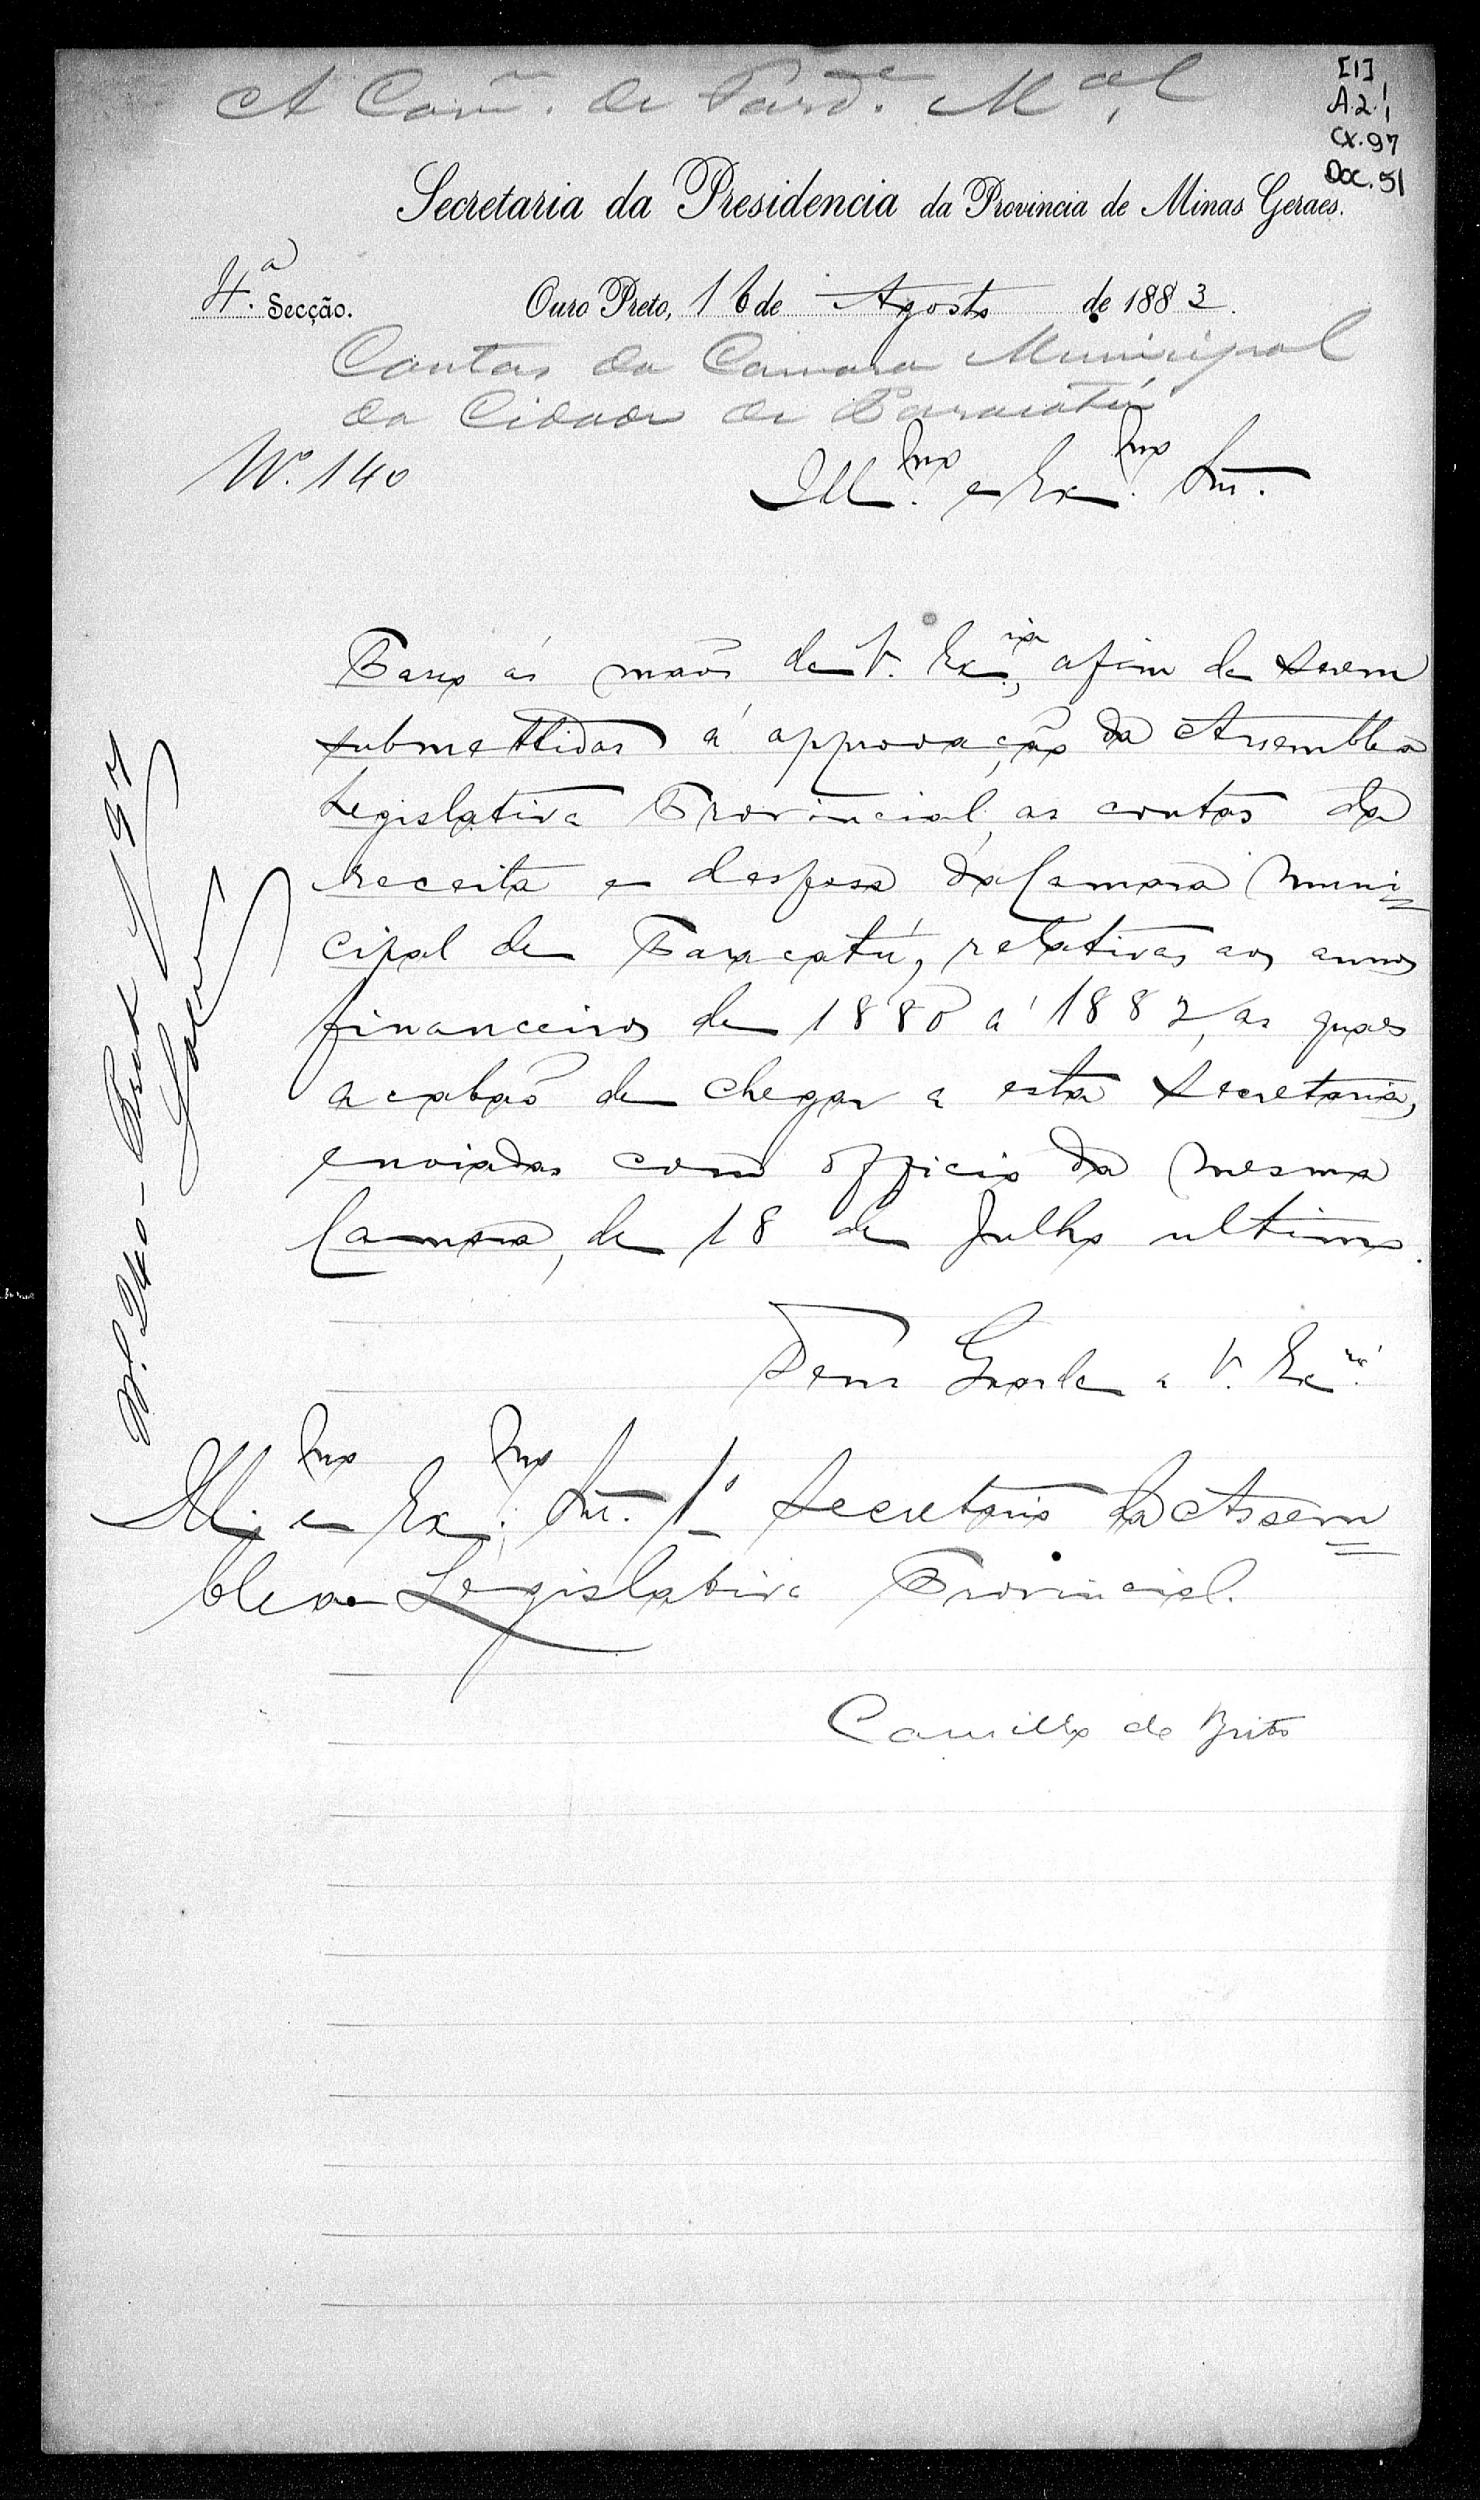 [1]
A.2.1
CX.97
Doc. 51
A Com. de Faz.ª M.al
Secretaria da Presidencia da Provincia de Minas Geraes.
4.ª Secção. Ouro Preto, 16 de Agosto de 1883.
Contas da Camara Municipal
da Cidade de Paracatú
N.º 140
Ill.mo e Ex.mo Snr.
Passo ás mãos de V. Ex.cia, afim de serem
submettidas á approvação da Assembléa
Legislativa Provincial, as contas da
receita e despesa da Camara Muni=
cipal de Paracatú, relativas aos annos
financeiros de 1880 a 1882, as quaes
acabão de chegar a esta Secretaria,
enviadas com officio da mesma
Camara, de 18 de Julho ultimo.
Deus Guarde a V. Ex.cia
Ill.mo e Ex.mo Snr. 1.º Secretario da Assem=
bléa Legislativa Provincial.
Camillo de Brito